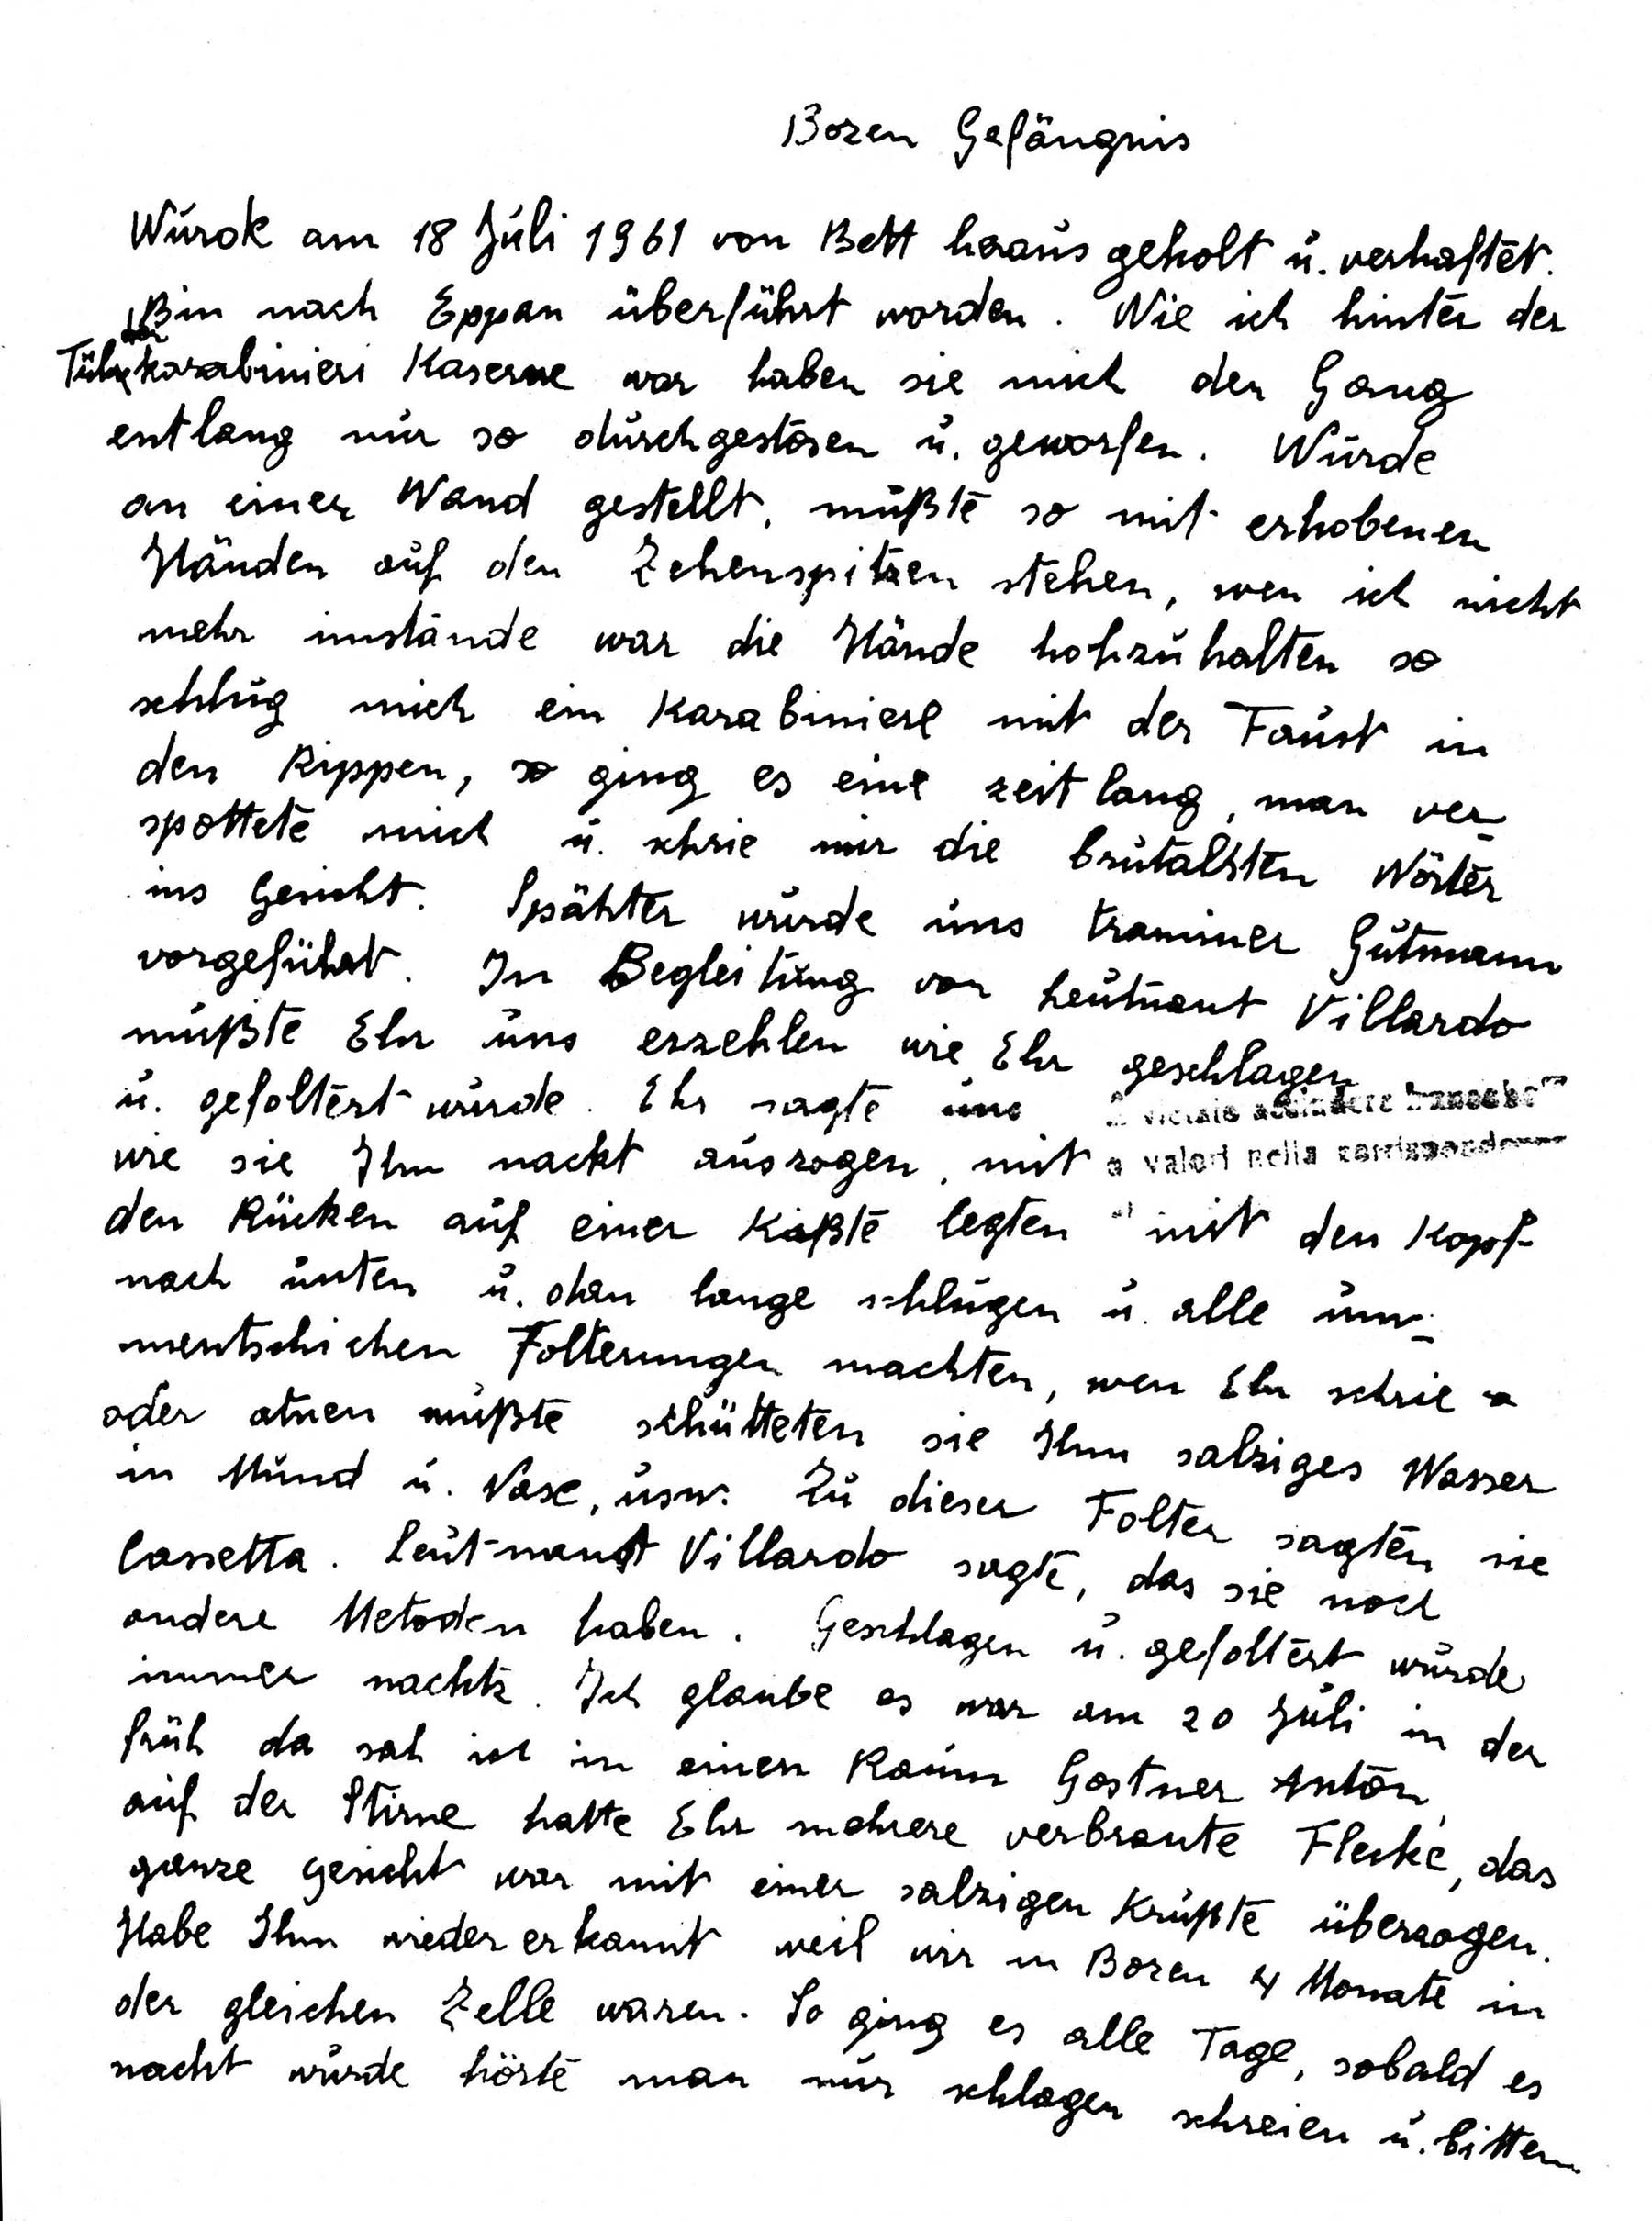 Bozen Gefängnis
Würde am 18 Juli 1961 von Bett heraus geholt u. verhaftet.
Bin nach Eppan überführt worden. Wie ich hinter der
Tühr der karabinieri Kaserne war haben sie mich den Gang
entlang nur so durchgestosen u. geworfen. Wurde
an einer Wand gestellt, mußte so mit erhobenen
Händen auf den Zehenspitzen stehen, wen ich nicht
mehr imstande war die Hände hohzuhalten so
schlug mich ein Karabiniere mit der Faust in
den Rippen, so ging es eine zeit lang, man ver-
spottete mich u. schrie mir die brutalsten Wörter
ins Gesicht. Spähter wurde uns traminer Gutmann
vorgeführt. In Begleitung von Leutnant Villardo
mußte Ehr uns erzehlen wie Ehr geschlagen
u. gefoltert wurde. Ehr sagte uns
wie sie Ihn nackt auszogen, mit
valori nella
den Rücken auf einer Kaßte legten mit den Kopf
nach unten u. dan lange schlugen u. alle un-
mentschichen Folterungen machten, wen Ehr schrie
oder atnen mußte schütteten sie Ihm salziges Wasser
in Mund u. Nase, usw. Zu dieser Folter sagten sie
Cassetta. Leut-nant Villardo sagte, das sie noch
andere Metoden haben. Geschlagen u. gefoltert wurde
immer nachts. Ich glaube es war am 20 Juli in der
früh da sah ich in einen Raum Gostner Anton,
auf der Stirne hatte Ehr mehrere verbrante Flecke, das
ganze Gesicht war mit einer salzigen Krußte überzogen.
Habe Ihm wieder erkannt weil wir in Bozen 4 Monate in
der gleichen Zelle waren. So ging es alle Tage, sobald es
nacht wurde hörte man nur schlagen schreien u. bitten